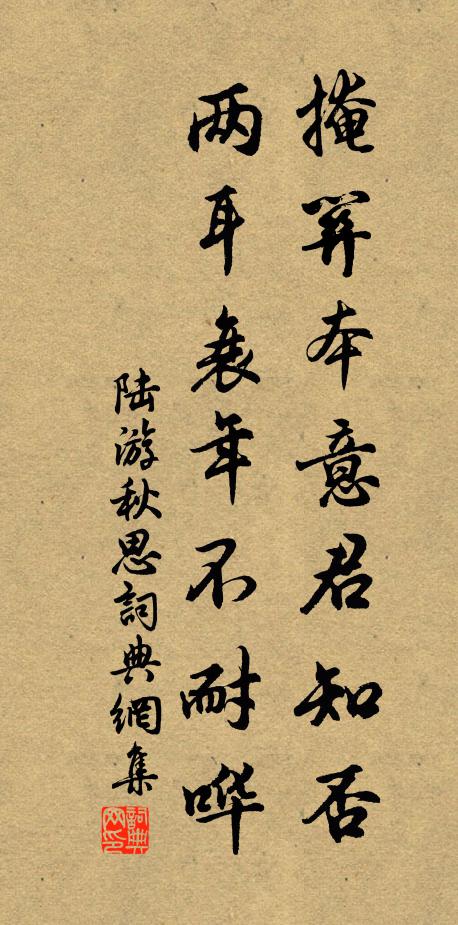 掩關本意君知否
两耳衰年不耐哗
陆游秋思詞典網集
詞典网印